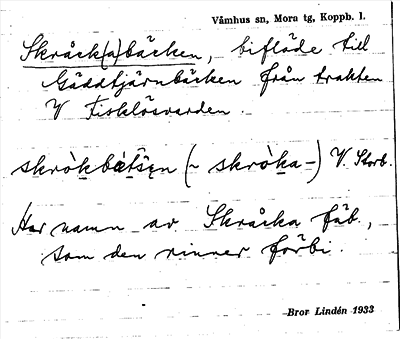 Våmhus sn, Mora tg, Koppb. l.
Skråck(a)bäcken, biflöde till
Gäddtjärnbäcken från trakten
V Fisklösvarden.
skròkbätšęn (~ skròka-) V. Storb.
Har namn av Skråcka fäb.,
som den rinner förbi.
Bror Lindén 1933